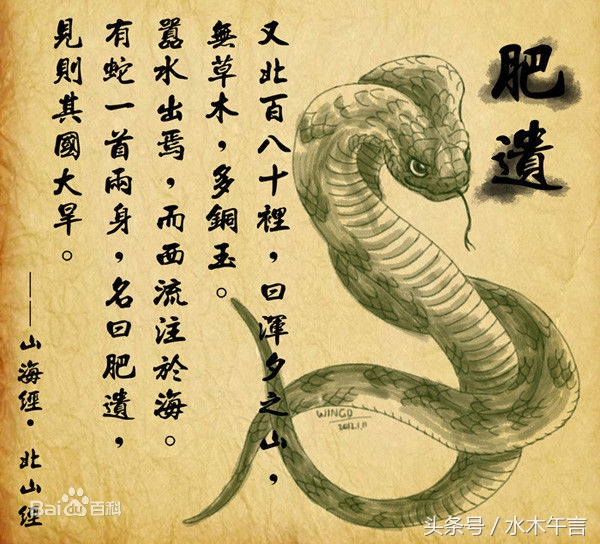 肥遺
又北百八十裡，曰渾夕之山，
無草木，多銅玉。
囂水出焉，而西流注於海。
有蛇一首兩身，名曰肥遺，
見則其國大旱。
——山海經·北山經
WINGO
2012.1.11
Bai du 百科
头条号 / 水木午言